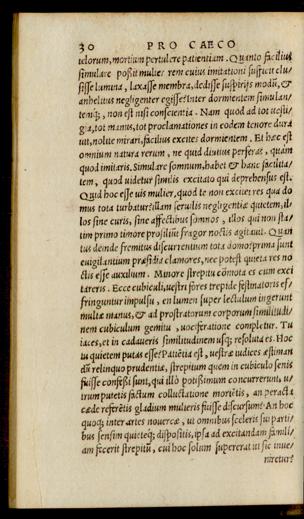 30 PRO CAECO
telorum, mortium pertulere patientiam. Quanto facilius
simulare possit mulier rem cuius imitationi sufficit clu-
sisse lumina, laxasse membra, dedisse suspirijs modũ, &
anhelitus negligenter egisse? Inter dormientem simulan-
temq;, non est nisi conscientia. Nam quod ad tot uesti-
gia, tot manus, tot proclamationes in eodem tenore dura
uit, nolite mirari, facilius excites dormientem. Et hæc est
omnium natura rerum, ne quid diutius perferas, quam
quod imitaris. Simulare somnum, habet & hanc facilita-
tem, quod uidetur similis excitato qui deprehensus est.
Quid hoc esse uis mulier, quod te non excitet res qua do
mus tota turbatur? illam seruilis negligentiæ quietem, il-
los sine curis, sine affectibus somnos, illos qui non sta-
tim primo timore prosiliũt fragor noctis agitauit. Quan
tus deinde fremitus discurrentium tota domo! prima sunt
euigilantium præsidia clamores, nec potest quieta res no
ctis esse auxilium. Minore strepitu cõmota es cum exci
tareris. Ecce cubiculi, uestri fores trepide festinatoris ef-
fringuntur impulsu, en lumen super lectulum ingerunt
multæ manus, & ad prostratorum corporum similitudi-
nem cubiculum gemitu, uociferatione completur. Tu
iaces, et in cadaueris similitudinem usq; resoluta es. Hoc
tu quietem putas esse? Patiẽtia est, uestræ iudices æstiman
dũ relinquo prudentiæ, strepitum quem in cubiculo senis
fuisse confessi sunt, qui illò potissimum concurrerunt, u-
trum putetis factum colluctatione moriẽtis, an peracta
cæde referẽtis gladium mulieris fuisse discursum? An hoc
quoq; inter artes nouercæ, ut omnibus sceleris sui parti-
bus sensim quieteq; dispositis, ipsa ad excitandam famili-
am fecerit strepitũ, cui hoc solum supererat ut sic inue-
niretur?